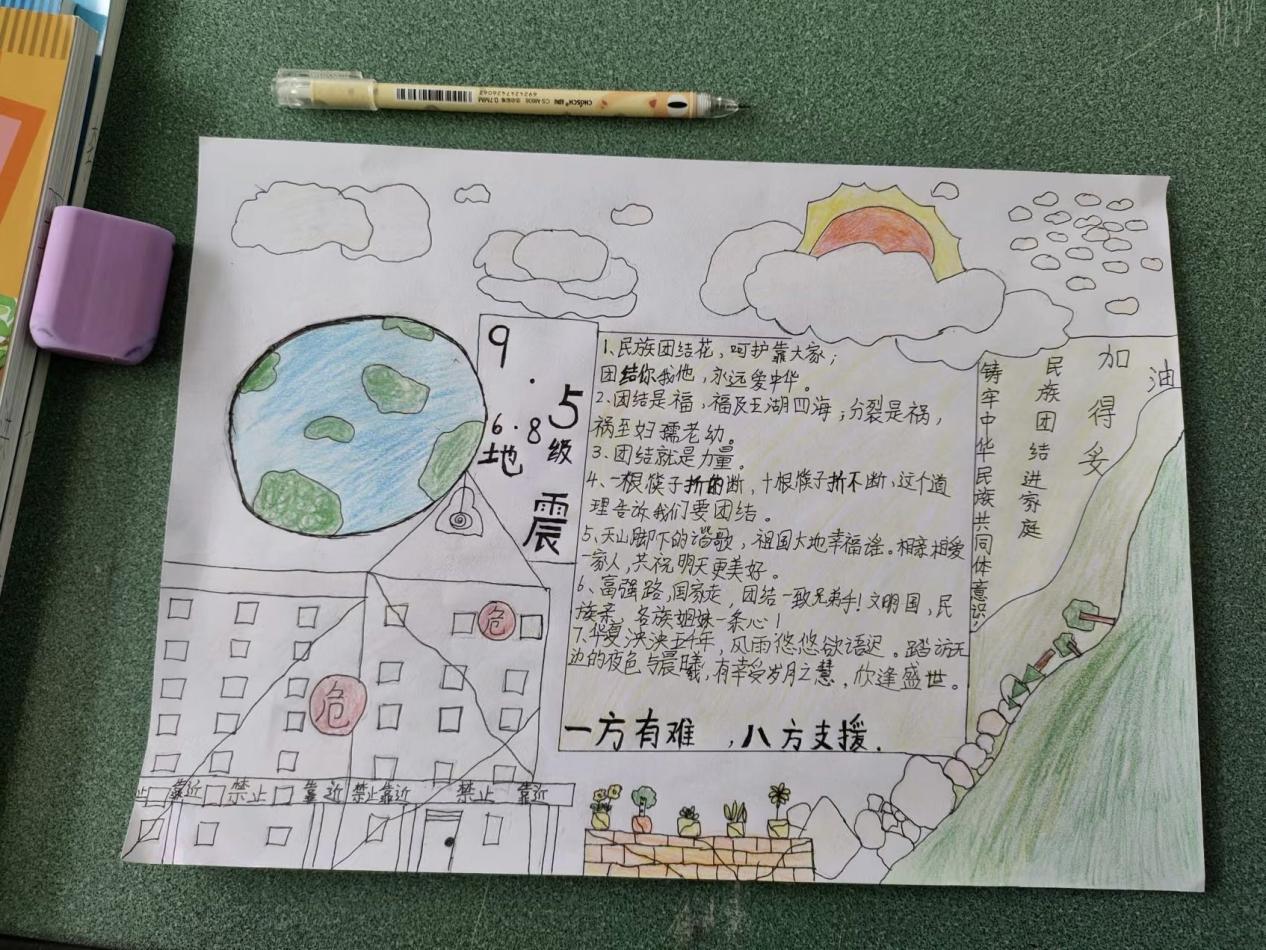 CHOSCH
0.7MM
6924274726062
9.5
6.8级
地震
1、民族团结花，呵护靠大家；
团结你我他，永远爱中华。
2、团结是福，福及五湖四海；分裂是祸，
祸至妇孺老幼。
3、团结就是力量。
4、一根筷子折的断，十根筷子折不断，这个道
理告放我们要团结。
5、天山脚下的谐歌，祖国大地幸福谣。相亲相爱
一家人，共祝明天更美好。
6、富强路，国家走，团结一致兄弟手！文明国，民
族柔，各族姐妹一条心！
7、华夏泱泱五千年，风雨悠悠欲语迟。踏访无
边的夜色与晨曦，有幸受岁月之慧，欣逢盛世。
一方有难，八方支援.
铸牢中华民族共同体意识！
民族团结进家庭
加油
得妥
危
危
止 靠近 禁止 靠近 禁止靠近 禁止 靠近